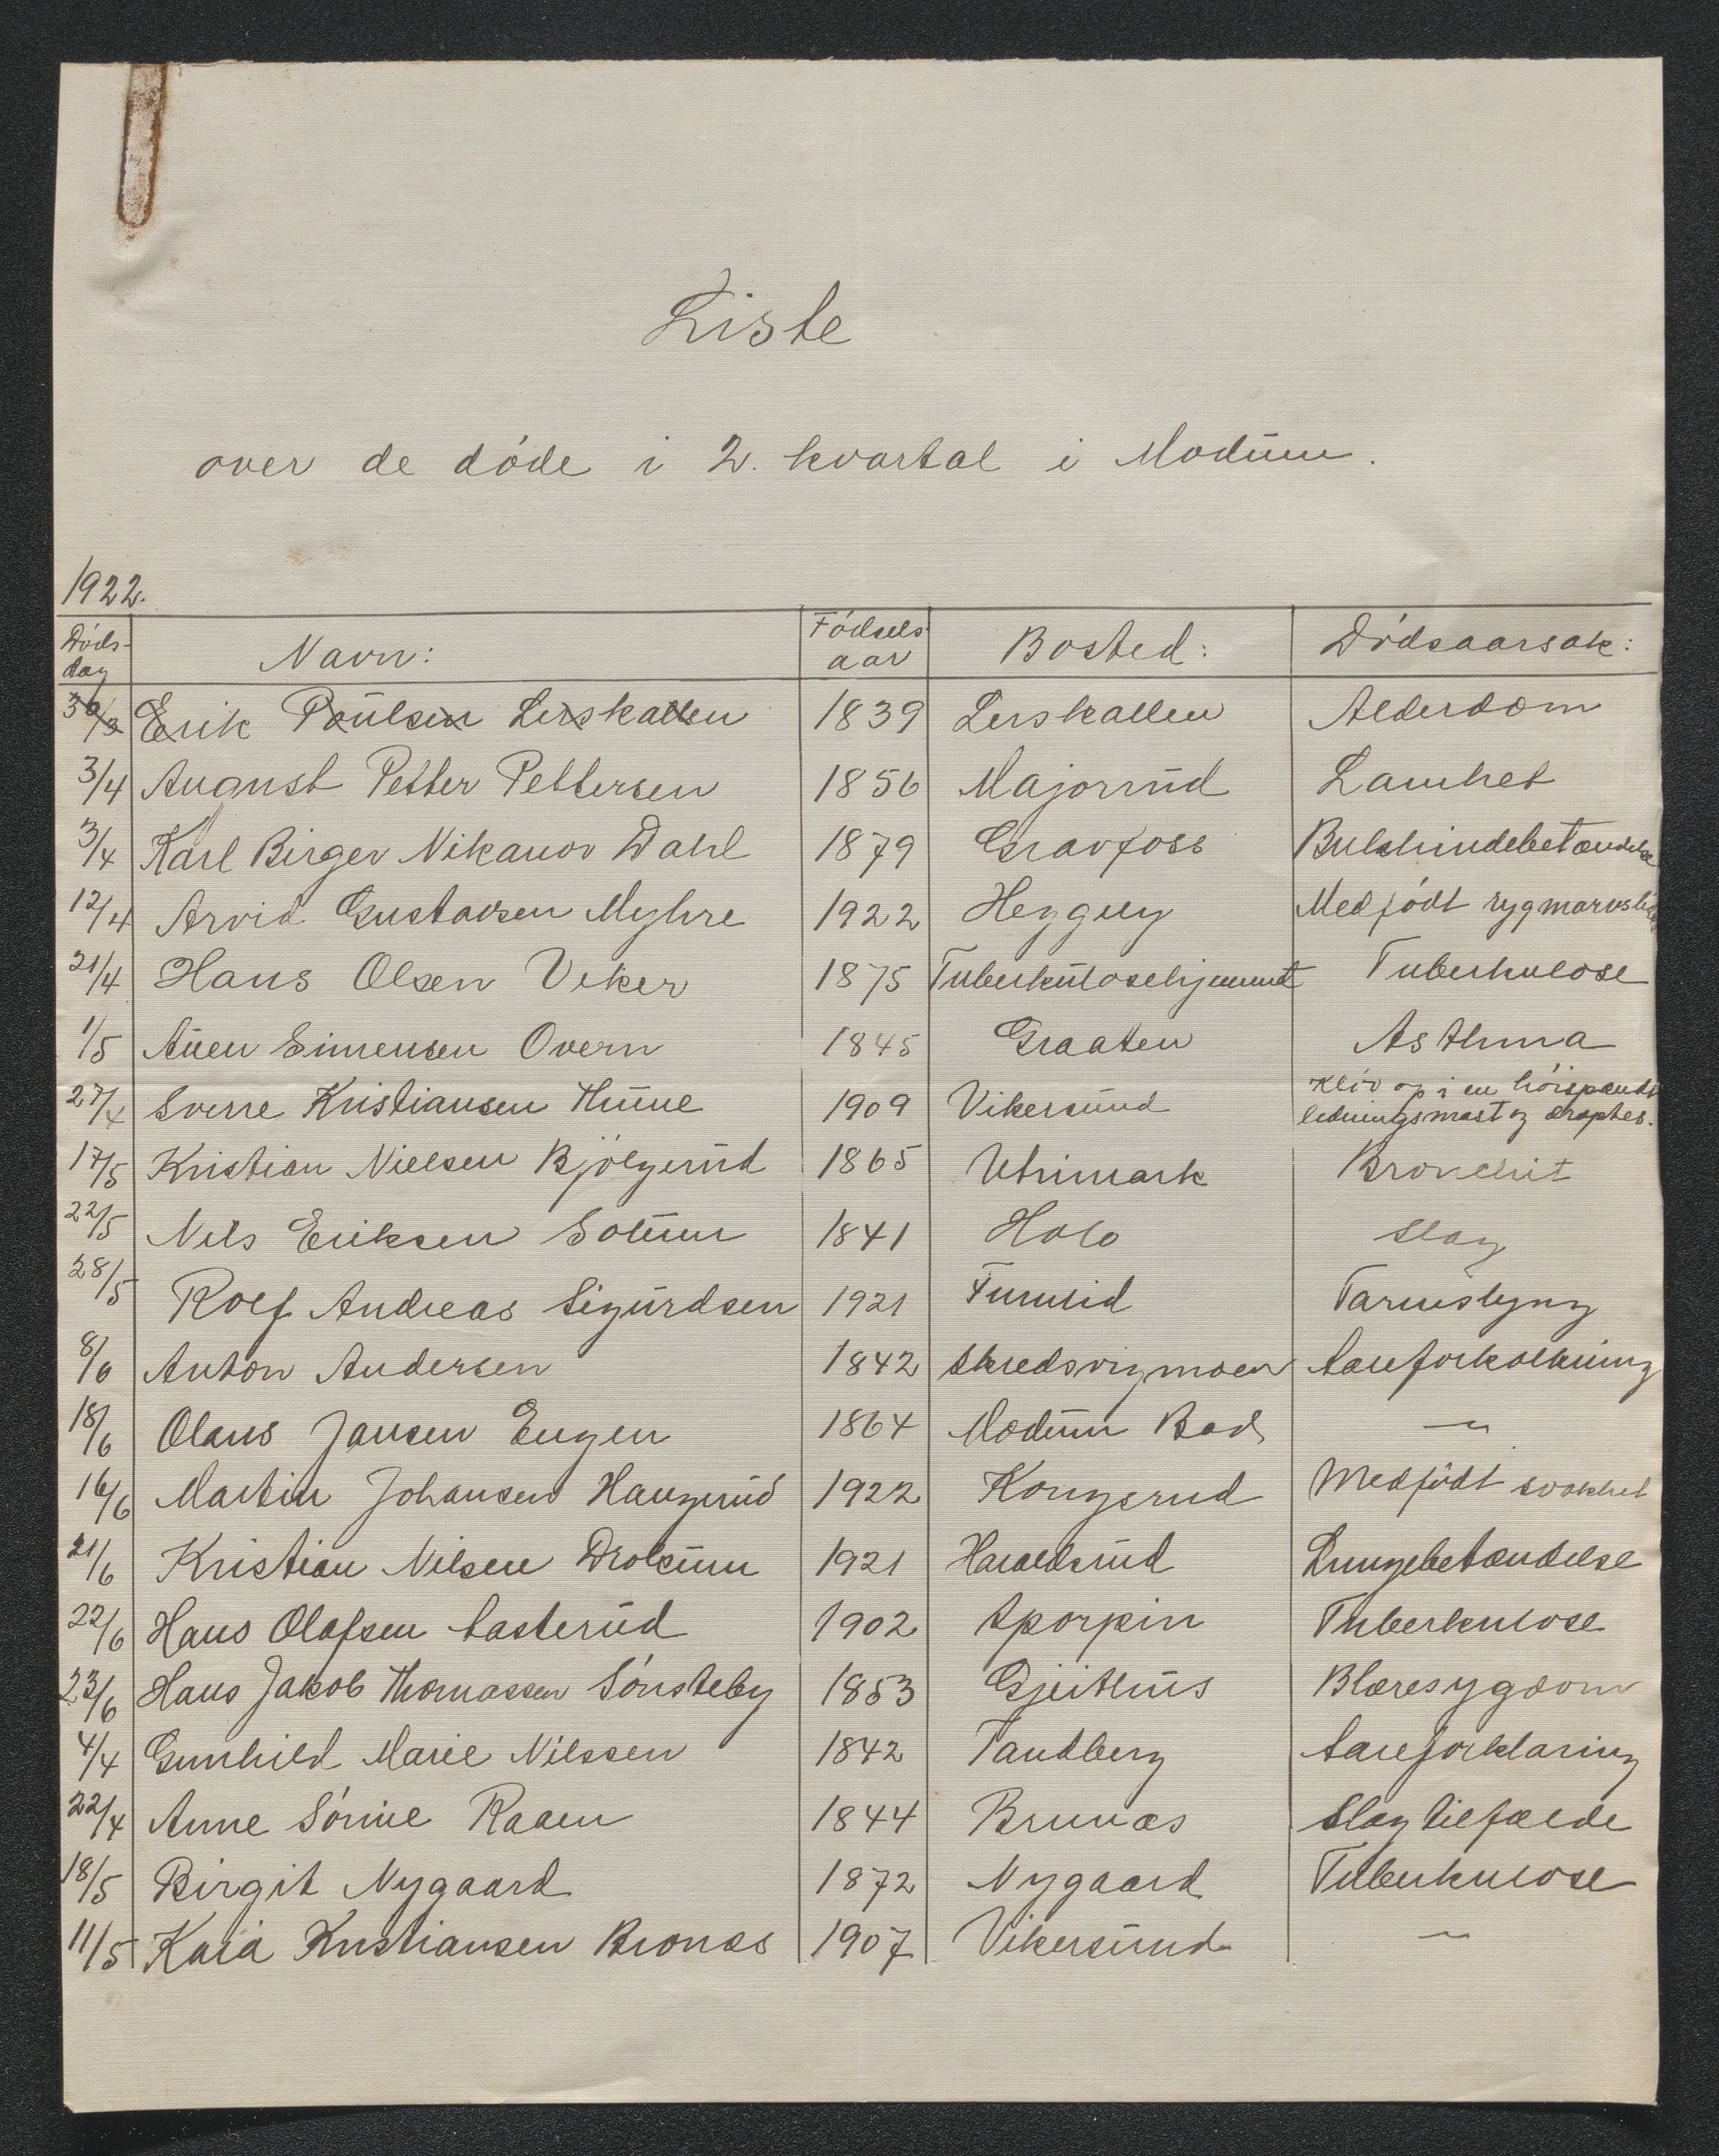 Liste
over de døde i 2. kvartal i Modum.
1922.
Døds-dag Navn: Fødsels aar Bosted: Dødsaarsak:
30/3 Erik Poulsen Lerskallen 1839 Lerskallen Alderdom
3/4 August Petter Pettersen 1856 Majorrud Lamhet
3/4 Karl Birger Nikanor Dahl 1879 Gravfoss Bukhindebetændelse
12/4 Arvid Gustavsen Myhre 1922 Heggey Medfödt rygmarvslid
21/4 Hans Olsen Veker 1875 Tuberkulosehjemmet Tuberkulose
1/5 Auen Simensen Overn 1845 Graaten Asthma
27/4 Sverre Kristiansen Hune 1909 Vikersund Kløv op i en høispændt
ledningsmast og dræptes.
17/5 Kristian Nielsen Bjølgerud 1865 Utrimark Bronchit
22/5 Nils Eriksen Solum 1841 Holo Slag
28/5 Rolf Andreas Sigurdsen 1921 Furulid Tarmslyng
8/6 Anton Andersen 1842 Skredsvigmoen Aareforkalkning
18/6 Olaus Jansen Engen 1864 Modum Bad —"—
16/6 Martin Johansen Haugerud 1922 Kongerud Medfödt svakhet
21/6 Kristian Nilsen Drolsum 1921 Haraldsrud Lungebetændelse
22/6 Hans Olafsen Aasterud 1902 Sporpin Tuberkulose
23/6 Hans Jakob Thomassen Sønsteby 1853 Gjeithus Blæresygdom
4/4 Gunhild Marie Nilssen 1842 Tandberg Aareforklaring
22/4 Anne Sørine Raaen 1844 Brunæs Slagtilfælde
18/5 Birgit Nygaard 1872 Nygaard Tuberkulose
11/5 Kaia Kristiansen Bronæs 1907 Vikersund —"—